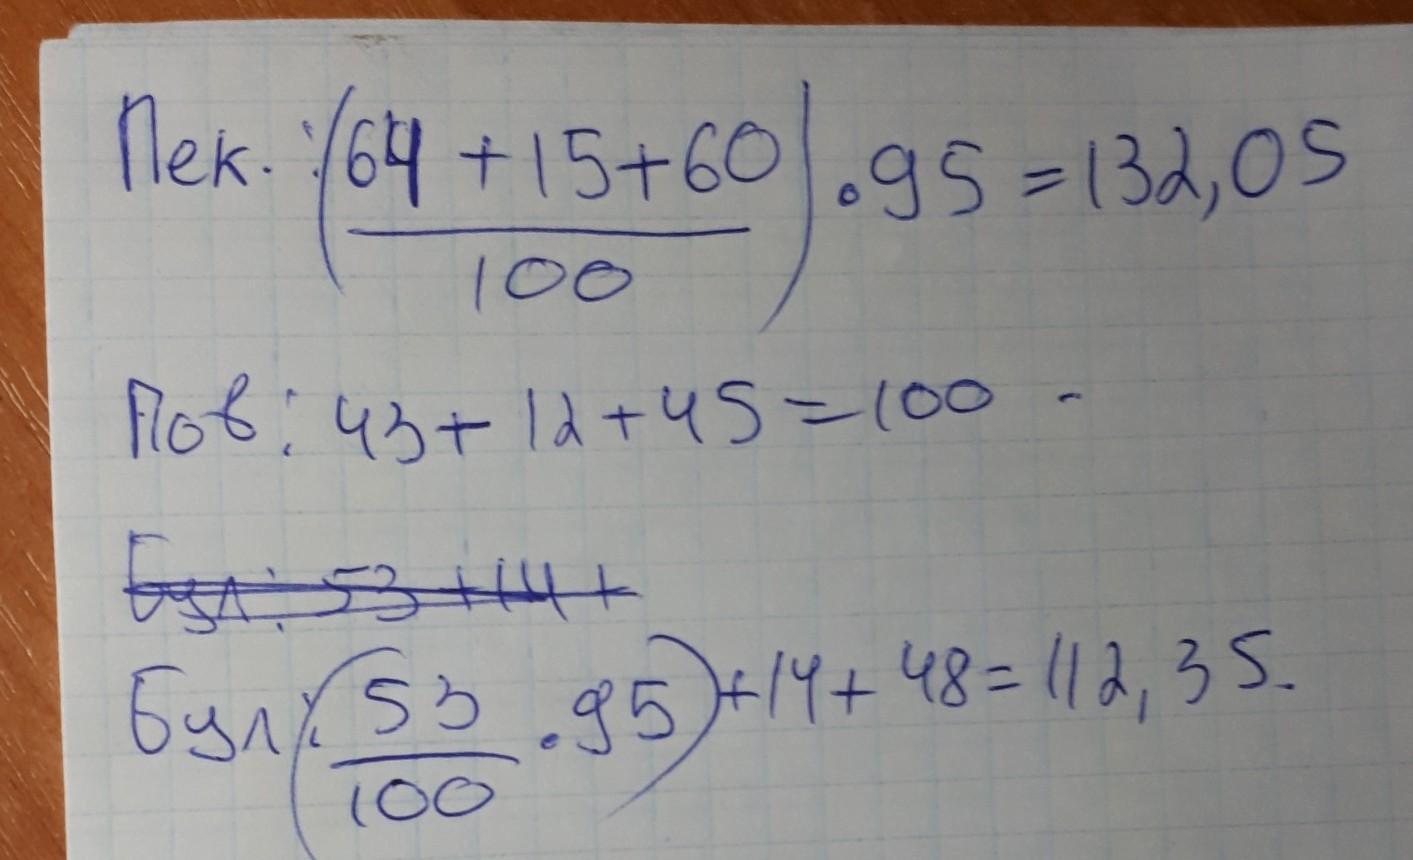 Пек.: (64 + 15 + 60 / 100) · 95 = 132,05
Пов: 43 + 12 + 45 = 100 -
Бул: 53 + 14 +
Бул: (53 / 100 · 95) + 14 + 48 = 112,35.